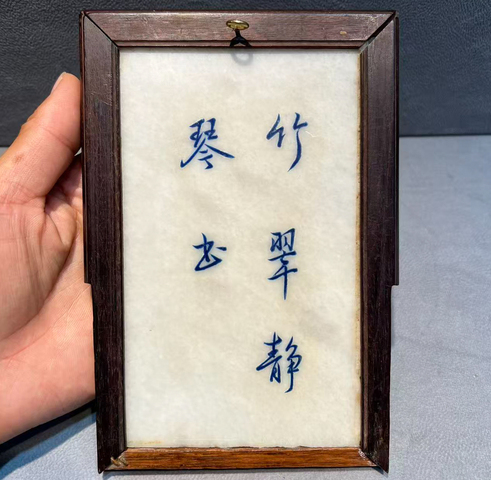 竹翠静
琴书